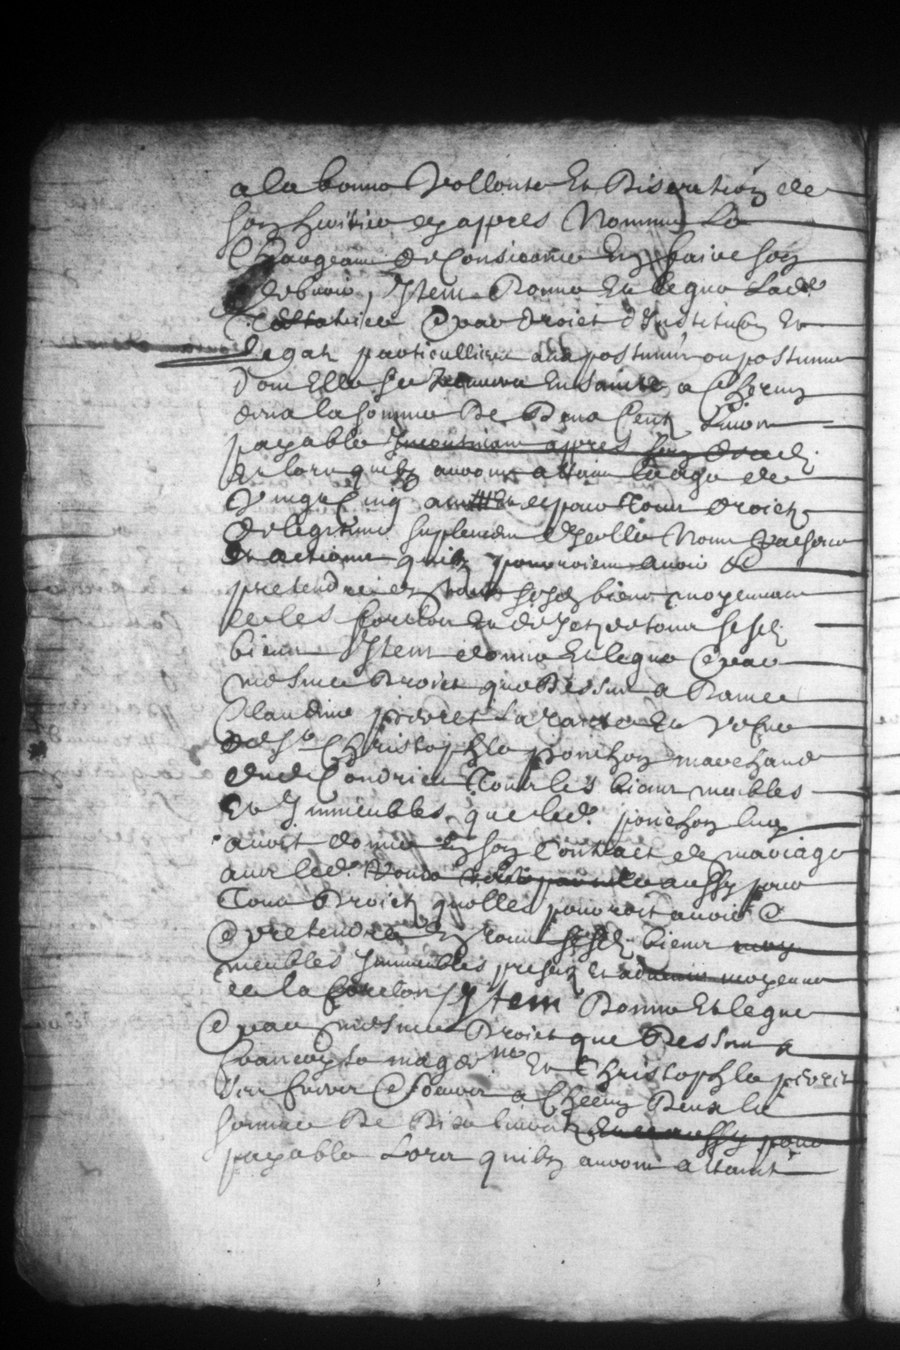 a la bonne vollonte et discretion de
son heritier cy apres nomme le
chargeant et consiance en faire son
debvoir, Item donne et legue lade
testatrice par droict d'institution et
legat particullier aux postumes ou postume
dont elle se trouvera enceinte a chacun
deux la somme de deux centz livres
payable incontinant apres son deceds
et lors quilz auront attaint leage de
vingt cinq ans et ce pour tous droictz
de legitime suplement dicelle noms raisons
et actions quilz pourroient avoir et
pretendre en tous sesdz biens moyennant
ce les forclos et dejettz de tous sesdz
biens Item donne et legue par
mesme droict que dessus a dame
Claudine pivret sa tante et vefve
de sr Christophle ponchon marchand
dud Condrieu tous les biens meubles
et Immeubles que led ponchon luy
avoit donne en son contract de mariage
avec led aussy pour
tous droictz quelle pourroit avoir et
pretendre en tous sesdz biens
meubles Immeubles presentz et moyennant
ce la forclos Item donne et legue
par mesme droict que dessus a
francoyse magdne et Christophle pivret
ses freres et soeurs a chacun deux la
somme de dix livres
payable lors quilz auront attaint